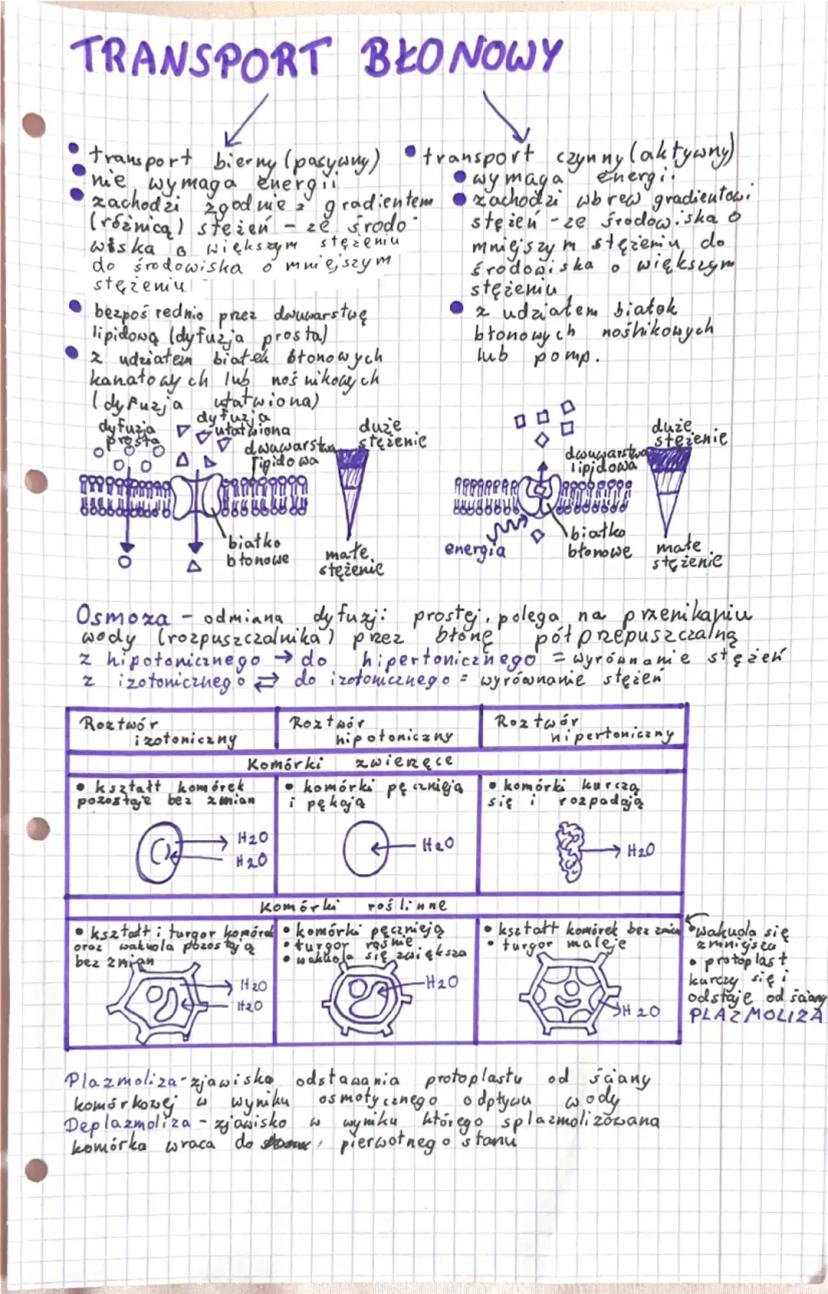 TRANSPORT BŁONOWY
transport bierny (pasywny)
nie wymaga energii
zachodzi zgodnie z gradientem
(różnicą) stężeń - ze środo-
wiska o większym stężeniu
do środowiska o mniejszym
stężeniu
bezpośrednio przez dwuwarstwę
lipidową (dyfuzja prosta)
z udziałem białek błonowych
kanałowych lub nośnikowych
(dyfuzja ułatwiona)
transport czynny (aktywny)
wymaga energii
zachodzi wbrew gradientowi
stężeń - ze środowiska o
mniejszym stężeniu do
środowiska o większym
stężeniu
z udziałem białek
błonowych nośnikowych
lub pomp.
dyfuzja
prosta
dyfuzja
ułatwiona
dwuwarstwa
lipidowa
duże
stężenie
białko
błonowe
małe
stężenie
dwuwarstwa
lipidowa
duże
stężenie
energia
białko
błonowe
małe
stężenie
Osmoza - odmiana dyfuzji prostej, polega na przenikaniu
wody (rozpuszczalnika) przez błonę półprzepuszczalną
z hipotonicznego → do hipertonicznego = wyrównanie stężeń
z izotonicznego ⇄ do izotonicznego = wyrównanie stężeń
Roztwór
izotoniczny
Roztwór
hipotoniczny
Roztwór
hipertoniczny
Komórki zwierzęce
• kształt komórek
pozostaje bez zmian
H2O
H2O
• komórki pęcznieją
i pękają
H2O
• komórki kurczą
się i rozpadają
H2O
Komórki roślinne
• kształt i turgor komórek
oraz wakuola pozostają
bez zmian
H2O
H2O
• komórki pęcznieją
• turgor rośnie
• wakuola się zwiększa
H2O
• kształt komórek bez zmian
• turgor maleje
H2O
• wakuola się
zmniejsza
• protoplast
kurczy się i
odstaje od ściany
PLAZMOLIZA
Plazmoliza - zjawisko odstawania protoplastu od ściany
komórkowej w wyniku osmotycznego odpływu wody
Deplazmoliza - zjawisko w wyniku którego splazmolizowana
komórka wraca do pierwotnego stanu